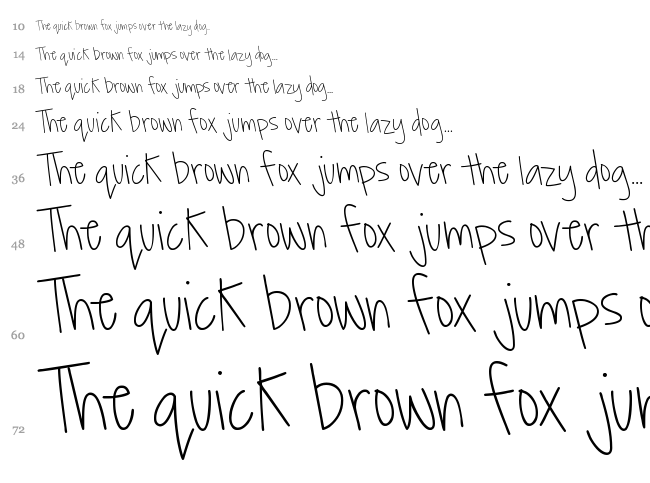 10 The quick brown fox jumps over the lazy dog...
14 The quick brown fox jumps over the lazy dog...
18 The quick brown fox jumps over the lazy dog...
24 The quick brown fox jumps over the lazy dog...
36 The quick brown fox jumps over the lazy dog...
48 The quick brown fox jumps over th
60 The quick brown fox jumps o
72 The quick brown fox jur